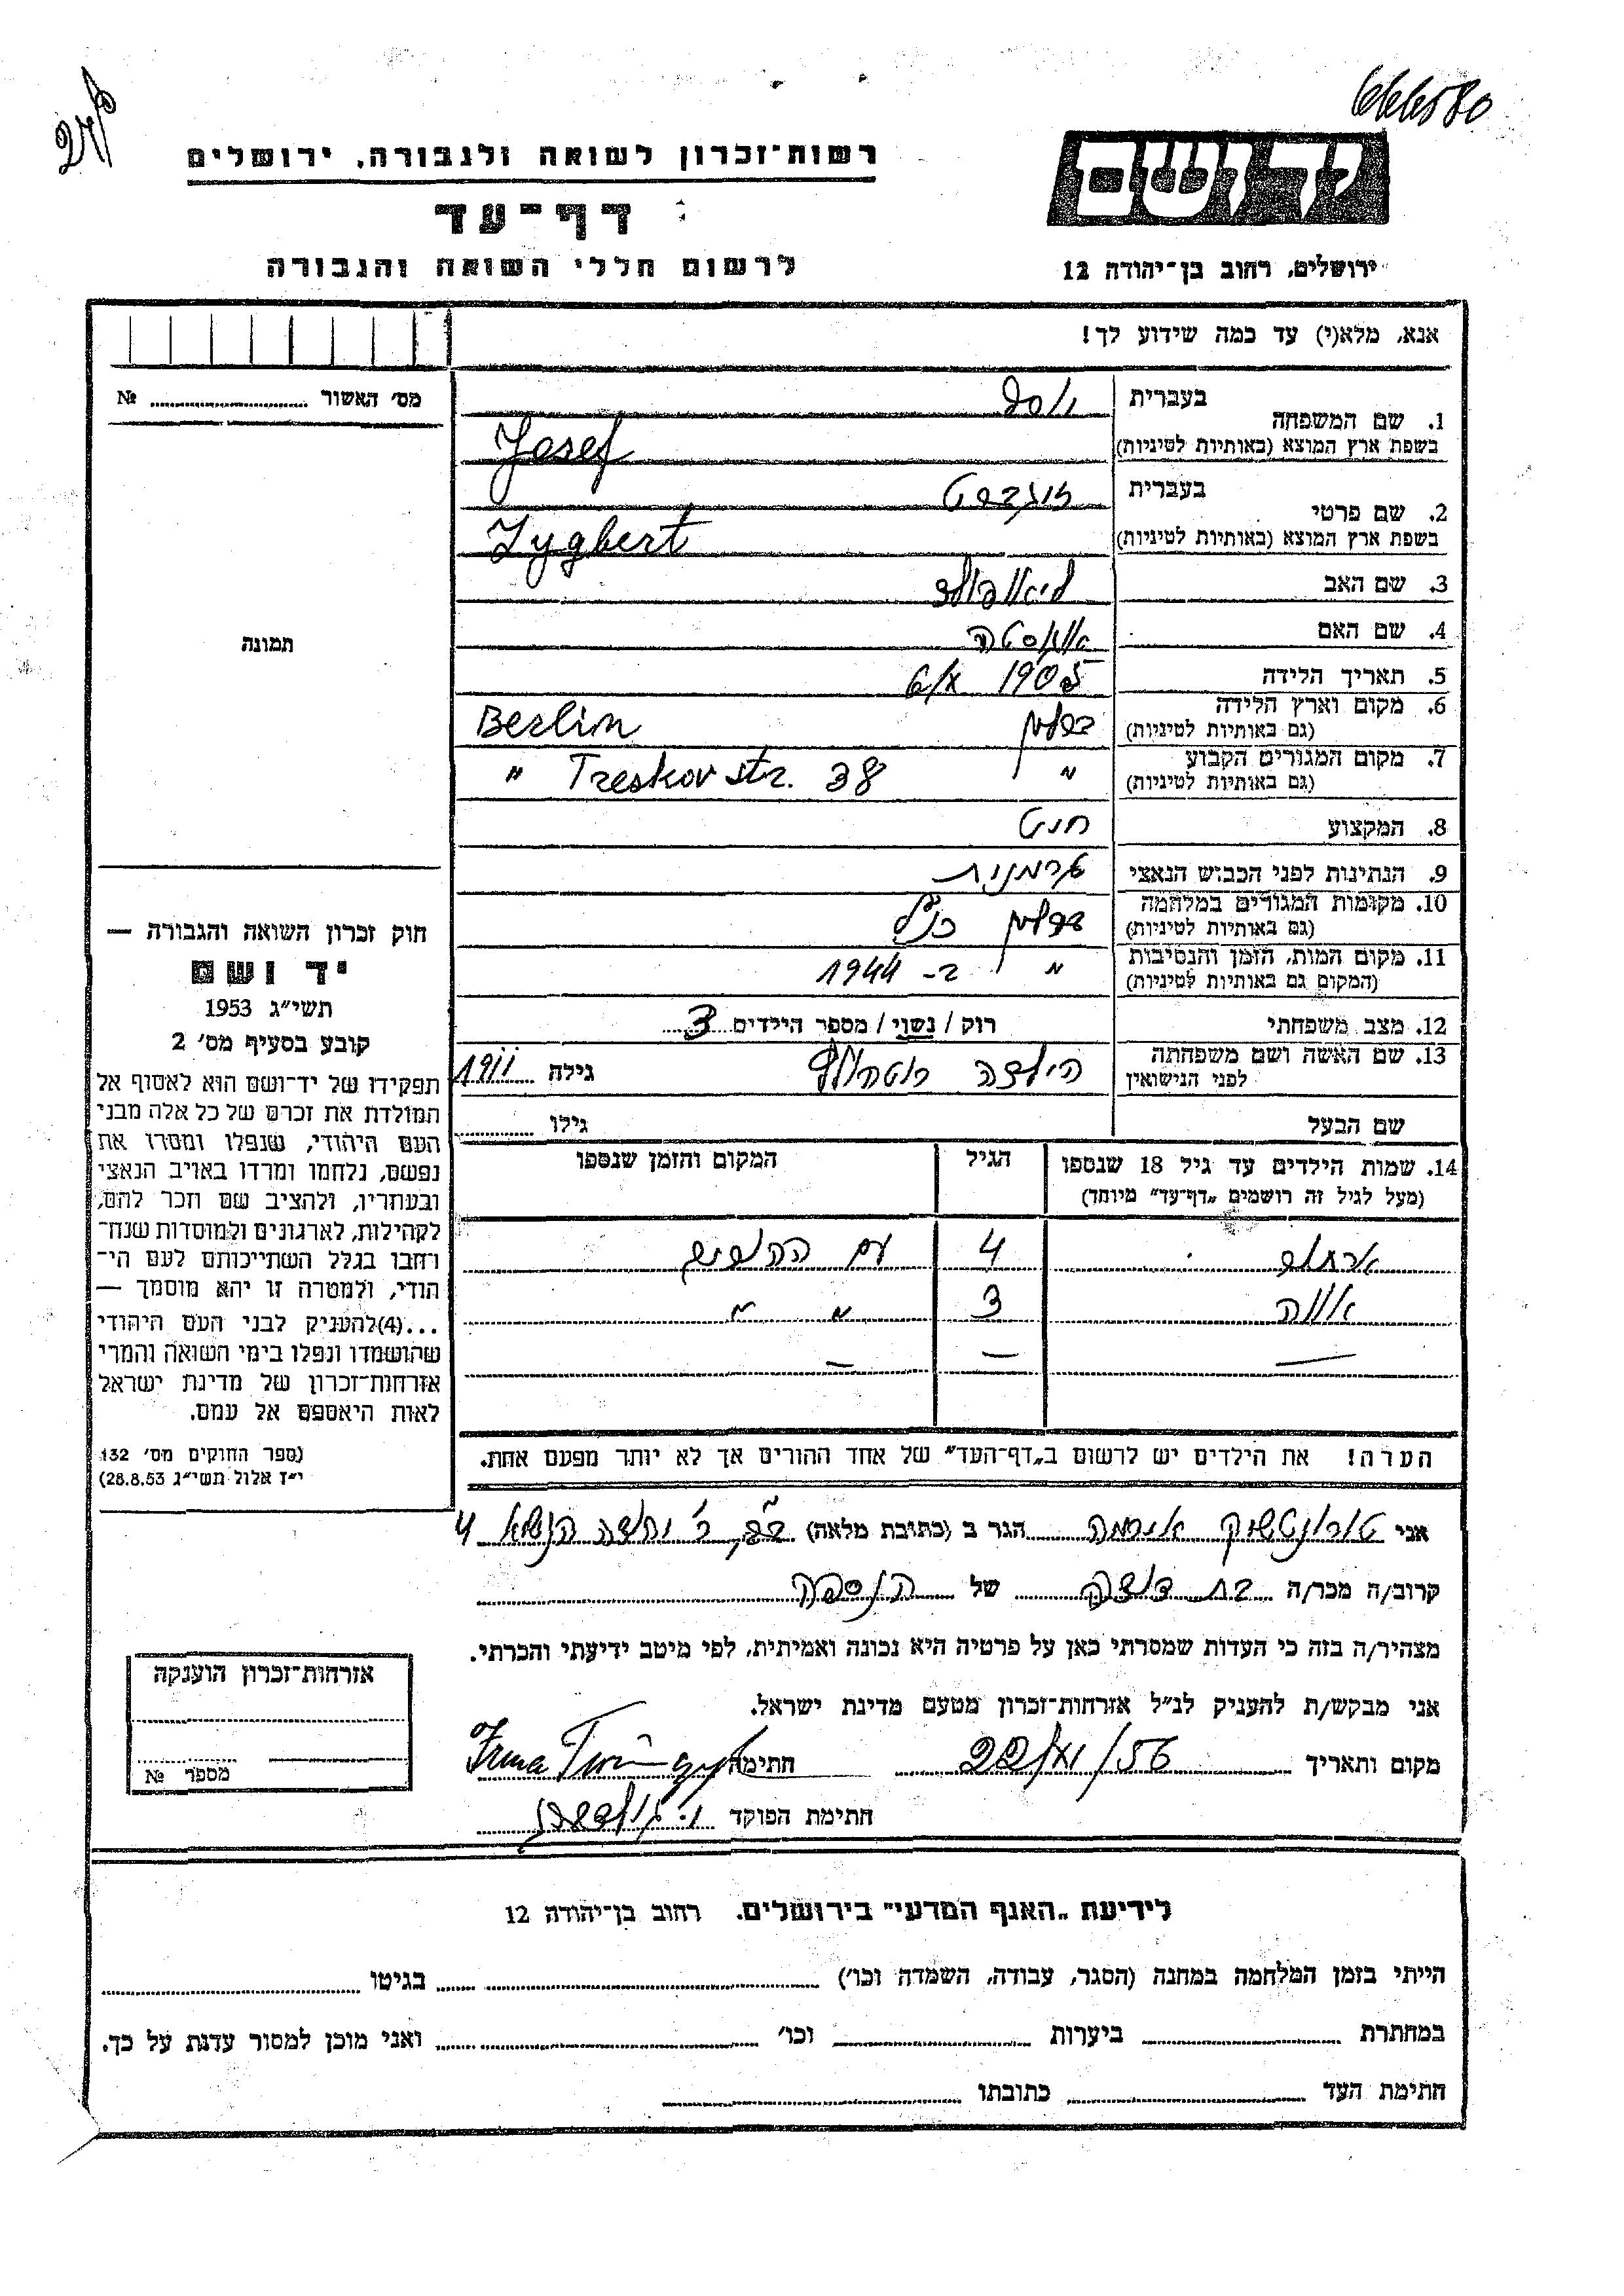 666580
רשות־זכרון לשואה ולגבורה, ירושלים
דף־עד
לרשום חללי השואה והגבורה
יד ושם
ירושלים, רחוב בן־יהודה 12
אנא, מלא(י) עד כמה שידוע לך!
מס׳ האשור № 
1. שם המשפחה בעברית יוסף
בשפת ארץ המוצא (באותיות לטיניות) Josef
2. שם פרטי בעברית זיגברט
בשפת ארץ המוצא (באותיות לטיניות) Zygbert
3. שם האב
4. שם האם אוגוסטה
5. תאריך הלידה 1905
6. מקום וארץ הלידה (גם באותיות לטיניות) ברלין Berlin
7. מקום המגורים הקבוע (גם באותיות לטיניות) " " Treskov str. 38
8. המקצוע חיט
9. הנתינות לפני הכבוש הנאצי גרמנית
10. מקומות המגורים במלחמה (גם באותיות לטיניות) ברלין כנ"ל
11. מקום המות, הזמן והנסיבות (המקום גם באותיות לטיניות) " ב- 1944
12. מצב משפחתי רוק / נשוי / מספר הילדים 3
13. שם האשה ושם משפחתה לפני הנישואין הילדה גילה 1911
שם הבעל גילו
14. שמות הילדים עד גיל 18 שנספו (מעל לגיל זה רושמים „דף־עד" מיוחד) הגיל המקום והזמן שנספו
4 עם ההורים
אווה 3 " "
— — —
הערה! את הילדים יש לרשום ב„דף־העד" של אחד ההורים אך לא יותר מפעם אחת.
תמונה
חוק זכרון השואה והגבורה —
יד ושם
תשי״ג 1953
קובע בסעיף מס׳ 2
תפקידו של יד־ושם הוא לאסוף אל
המולדת את זכרם של כל אלה מבני
העם היהודי, שנפלו ומסרו את
נפשם, נלחמו ומרדו באויב הנאצי
ובעוזריו, ולהציב שם וזכר להם,
לקהילות, לארגונים ולמוסדות שנח־
רחבו בגלל השתייכותם לעם הי־
הודי, ולמטרה זו יהא מוסמך —
...(4)להעניק לבני העם היהודי
שהושמדו ונפלו בימי השואה והמרי
אזרחות־זכרון של מדינת ישראל
לאות היאספם אל עמם.
(ספר החוקים מס׳ 132
י״ז אלול תשי״ג 28.8.53)
אני אירמה הגר ב (כתובת מלאה) ב"ב, ר' יהודה הנשיא 4
קרוב/ה מכר/ה בת דודה של הנספה
מצהיר/ה בזה כי העדות שמסרתי כאן על פרטיה היא נכונה ואמיתית, לפי מיטב ידיעתי והכרתי.
אני מבקש/ת להעניק לנ״ל אזרחות־זכרון מטעם מדינת ישראל.
מקום ותאריך 22/VI/56 חתימה Irma
חתימת הפוקד
אזרחות־זכרון הוענקה
מספר №
לידיעת „האגף המדעי" בירושלים. רחוב בן־יהודה 12
הייתי בזמן המלחמה במחנה (הסגר, עבודה, השמדה וכו׳) בגיטו
במחתרת ביערות וכו׳ ואני מוכן למסור עדות על כך.
חתימת העד כתובתו